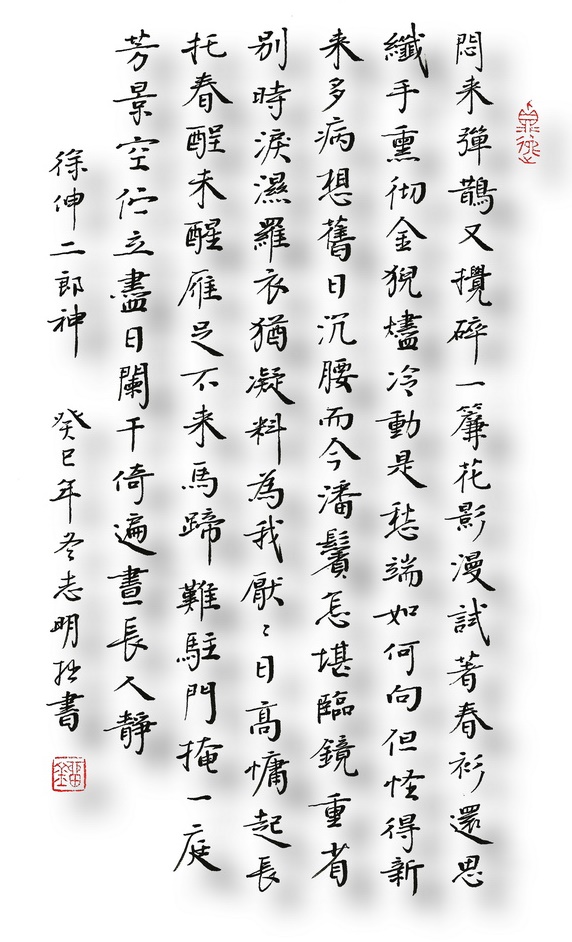 悶来彈鵲又攪碎一簾花影漫試著春衫還思
纖手熏彻金猊燼冷動是愁端如何向但怪得新
来多病想舊日沉腰而今潘鬢怎堪臨鏡重省
别時淚濕羅衣猶凝料為我厭〻日高慵起長
托春酲未醒雁足不来馬蹄難駐門掩一庭
芳景空佇立盡日闌干倚遍晝長人靜
徐伸二郎神 癸巳年冬志明拙書